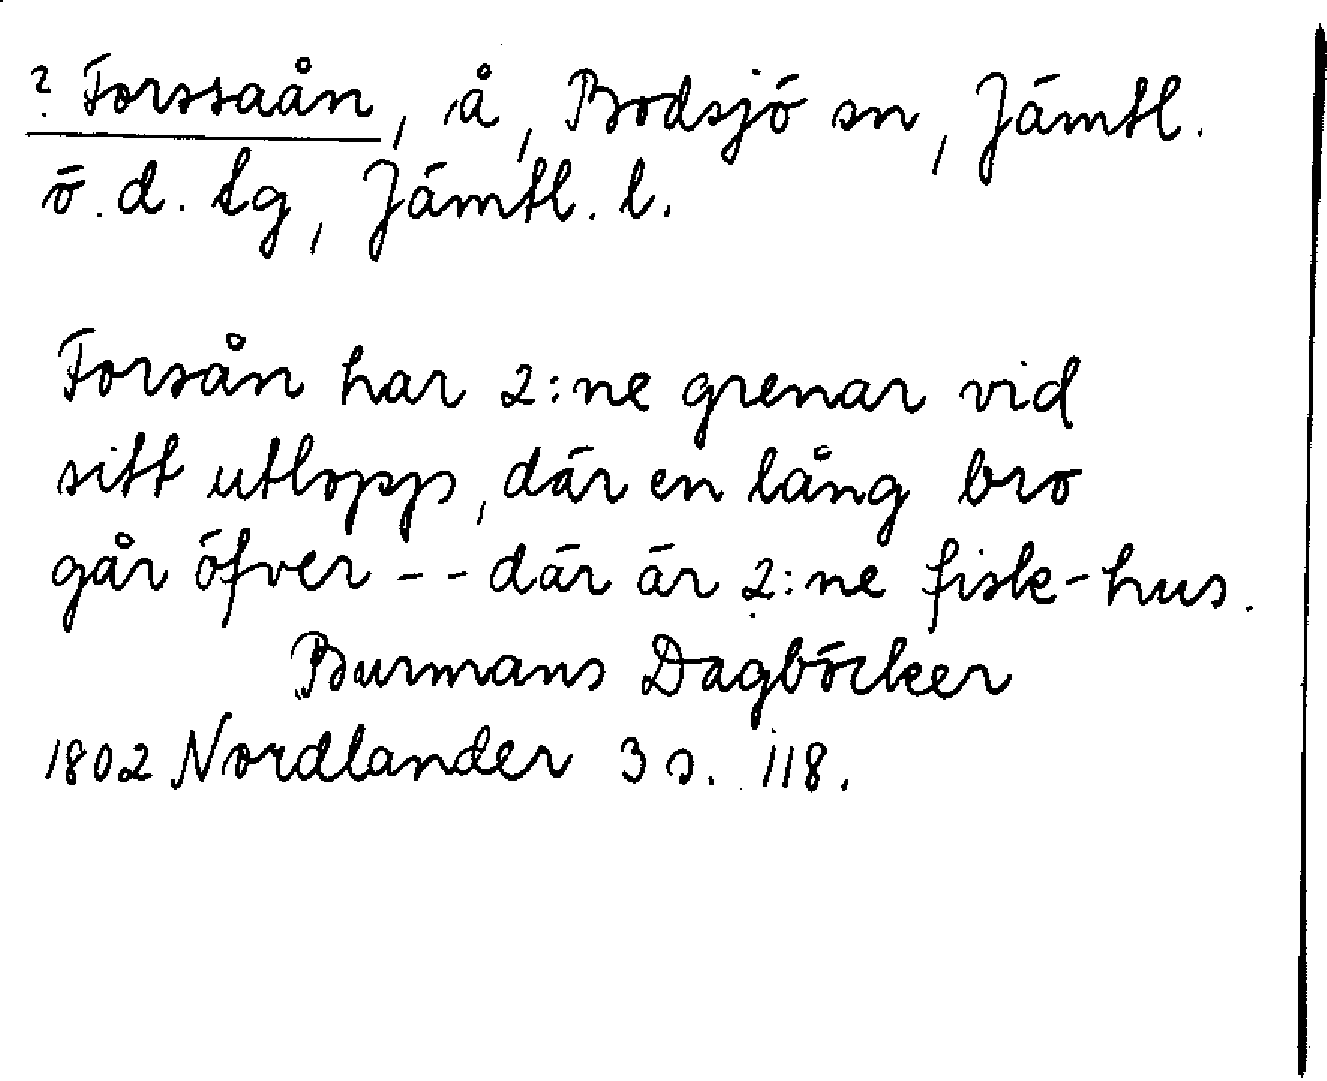 ? Forssaån, å, Bodsjö sn, Jämtl.
ö. d. tg, Jämtl. l.
Forsån har 2:ne grenar vid
sitt utlopp, där en lång bro
går öfver -- där är 2:ne fisk-hus.
Burmans Dagböcker
1802 Nordlander 3 s. 118.